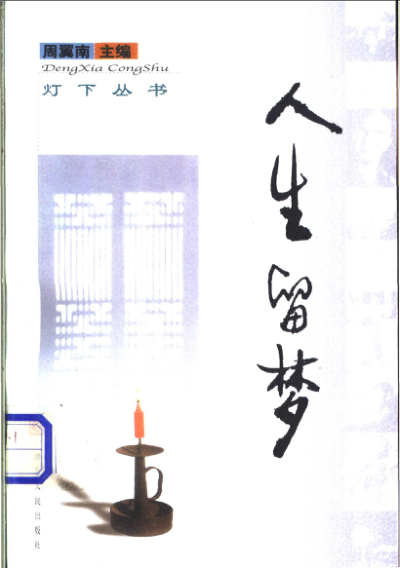 周翼南 主编
DengXia CongShu
灯下丛书
人生留梦
人民出版社